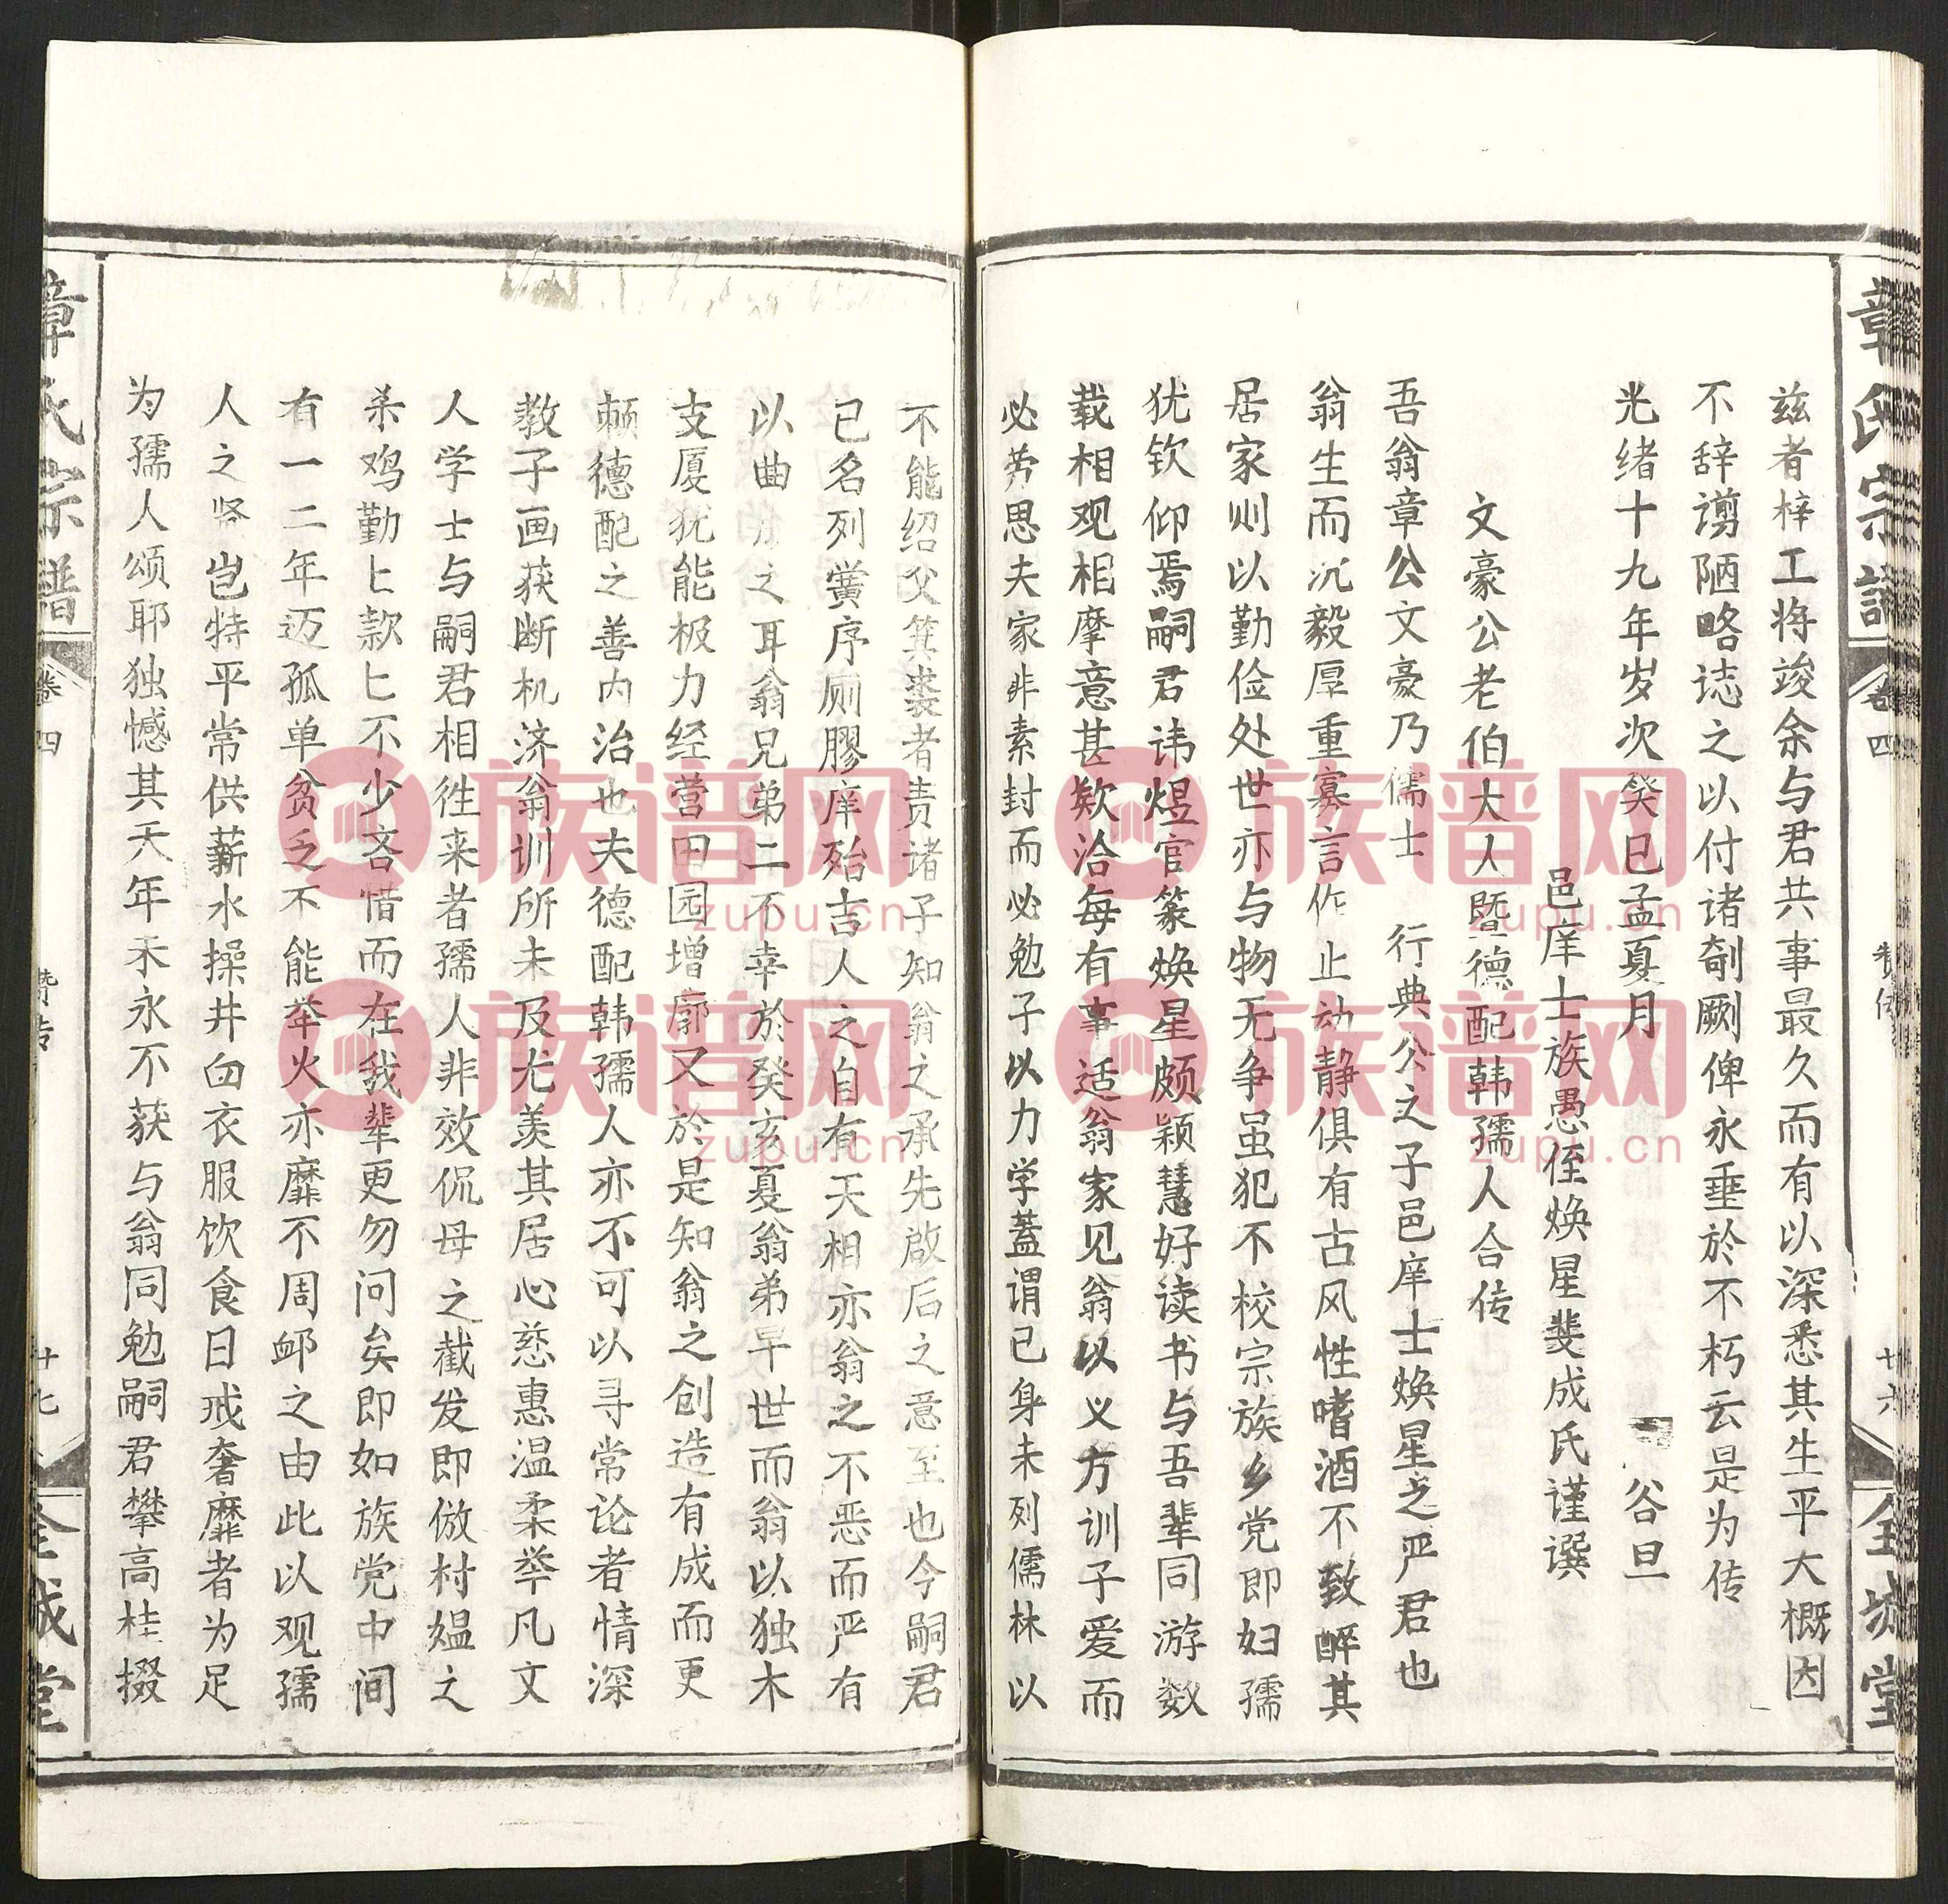 章氏宗譜 卷四 贊傳 廿六 全城堂
兹者梓工将竣余与君共事最久而有以深悉其生平大概因
不辞谫陋略诰之以付诸剞劂俾永垂於不朽云是为传
光绪十九年岁次癸巳孟夏月 谷旦
邑庠士族愚侄焕星斐成氏谨譔
文豪公老伯大人暨德配韩孺人合传
吾翁章公文豪乃儒士 行典公之子邑庠士焕星之严君也
翁生而沉毅厚重寡言作止动静俱有古风性嗜酒不致醉其
居家则以勤俭处世亦与物无争虽犯不校宗族乡党即妇孺
犹钦仰焉嗣君讳煜官篆焕星颇颖慧好读书与吾辈同游数
载相观相摩意甚欵洽每有事适翁家见翁以义方训子爱而
必劳思夫家非素封而必勉子以力学蓋谓已身未列儒林以
不能绍父箕裘者责诸子知翁之承先啟后之意至也今嗣君
已名列黉序厕膠庠殆吉人之自有天相亦翁之不恶而严有
以曲力之耳翁兄弟二不幸於癸亥夏翁弟早世而翁以独木
支厦犹能极力经营田园增廓又於是知翁之创造有成而更
赖德配之善内治也夫德配韩孺人亦不可以寻常论者情深
教子画荻断机济翁训所未及尤羡其居心慈惠温柔举凡文
人学士与嗣君相徃来者孺人非效侃母之截发即倣村媪之
杀鸡勤匕款匕不少吝惜而在我辈更勿问矣即如族党中间
有一二年迈孤单贫乏不能举火亦靡不周邮之由此以观孺
人之贤岂特平常供薪水操井臼衣服饮食日戒奢靡者为足
为孺人颂耶独憾其天年未永不获与翁同勉嗣君攀高桂掇
章氏宗譜 卷四 贊传 廿七 全城堂
族谱网
zupu.cn
族谱网
zupu.cn
族谱网
zupu.cn
族谱网
zupu.cn